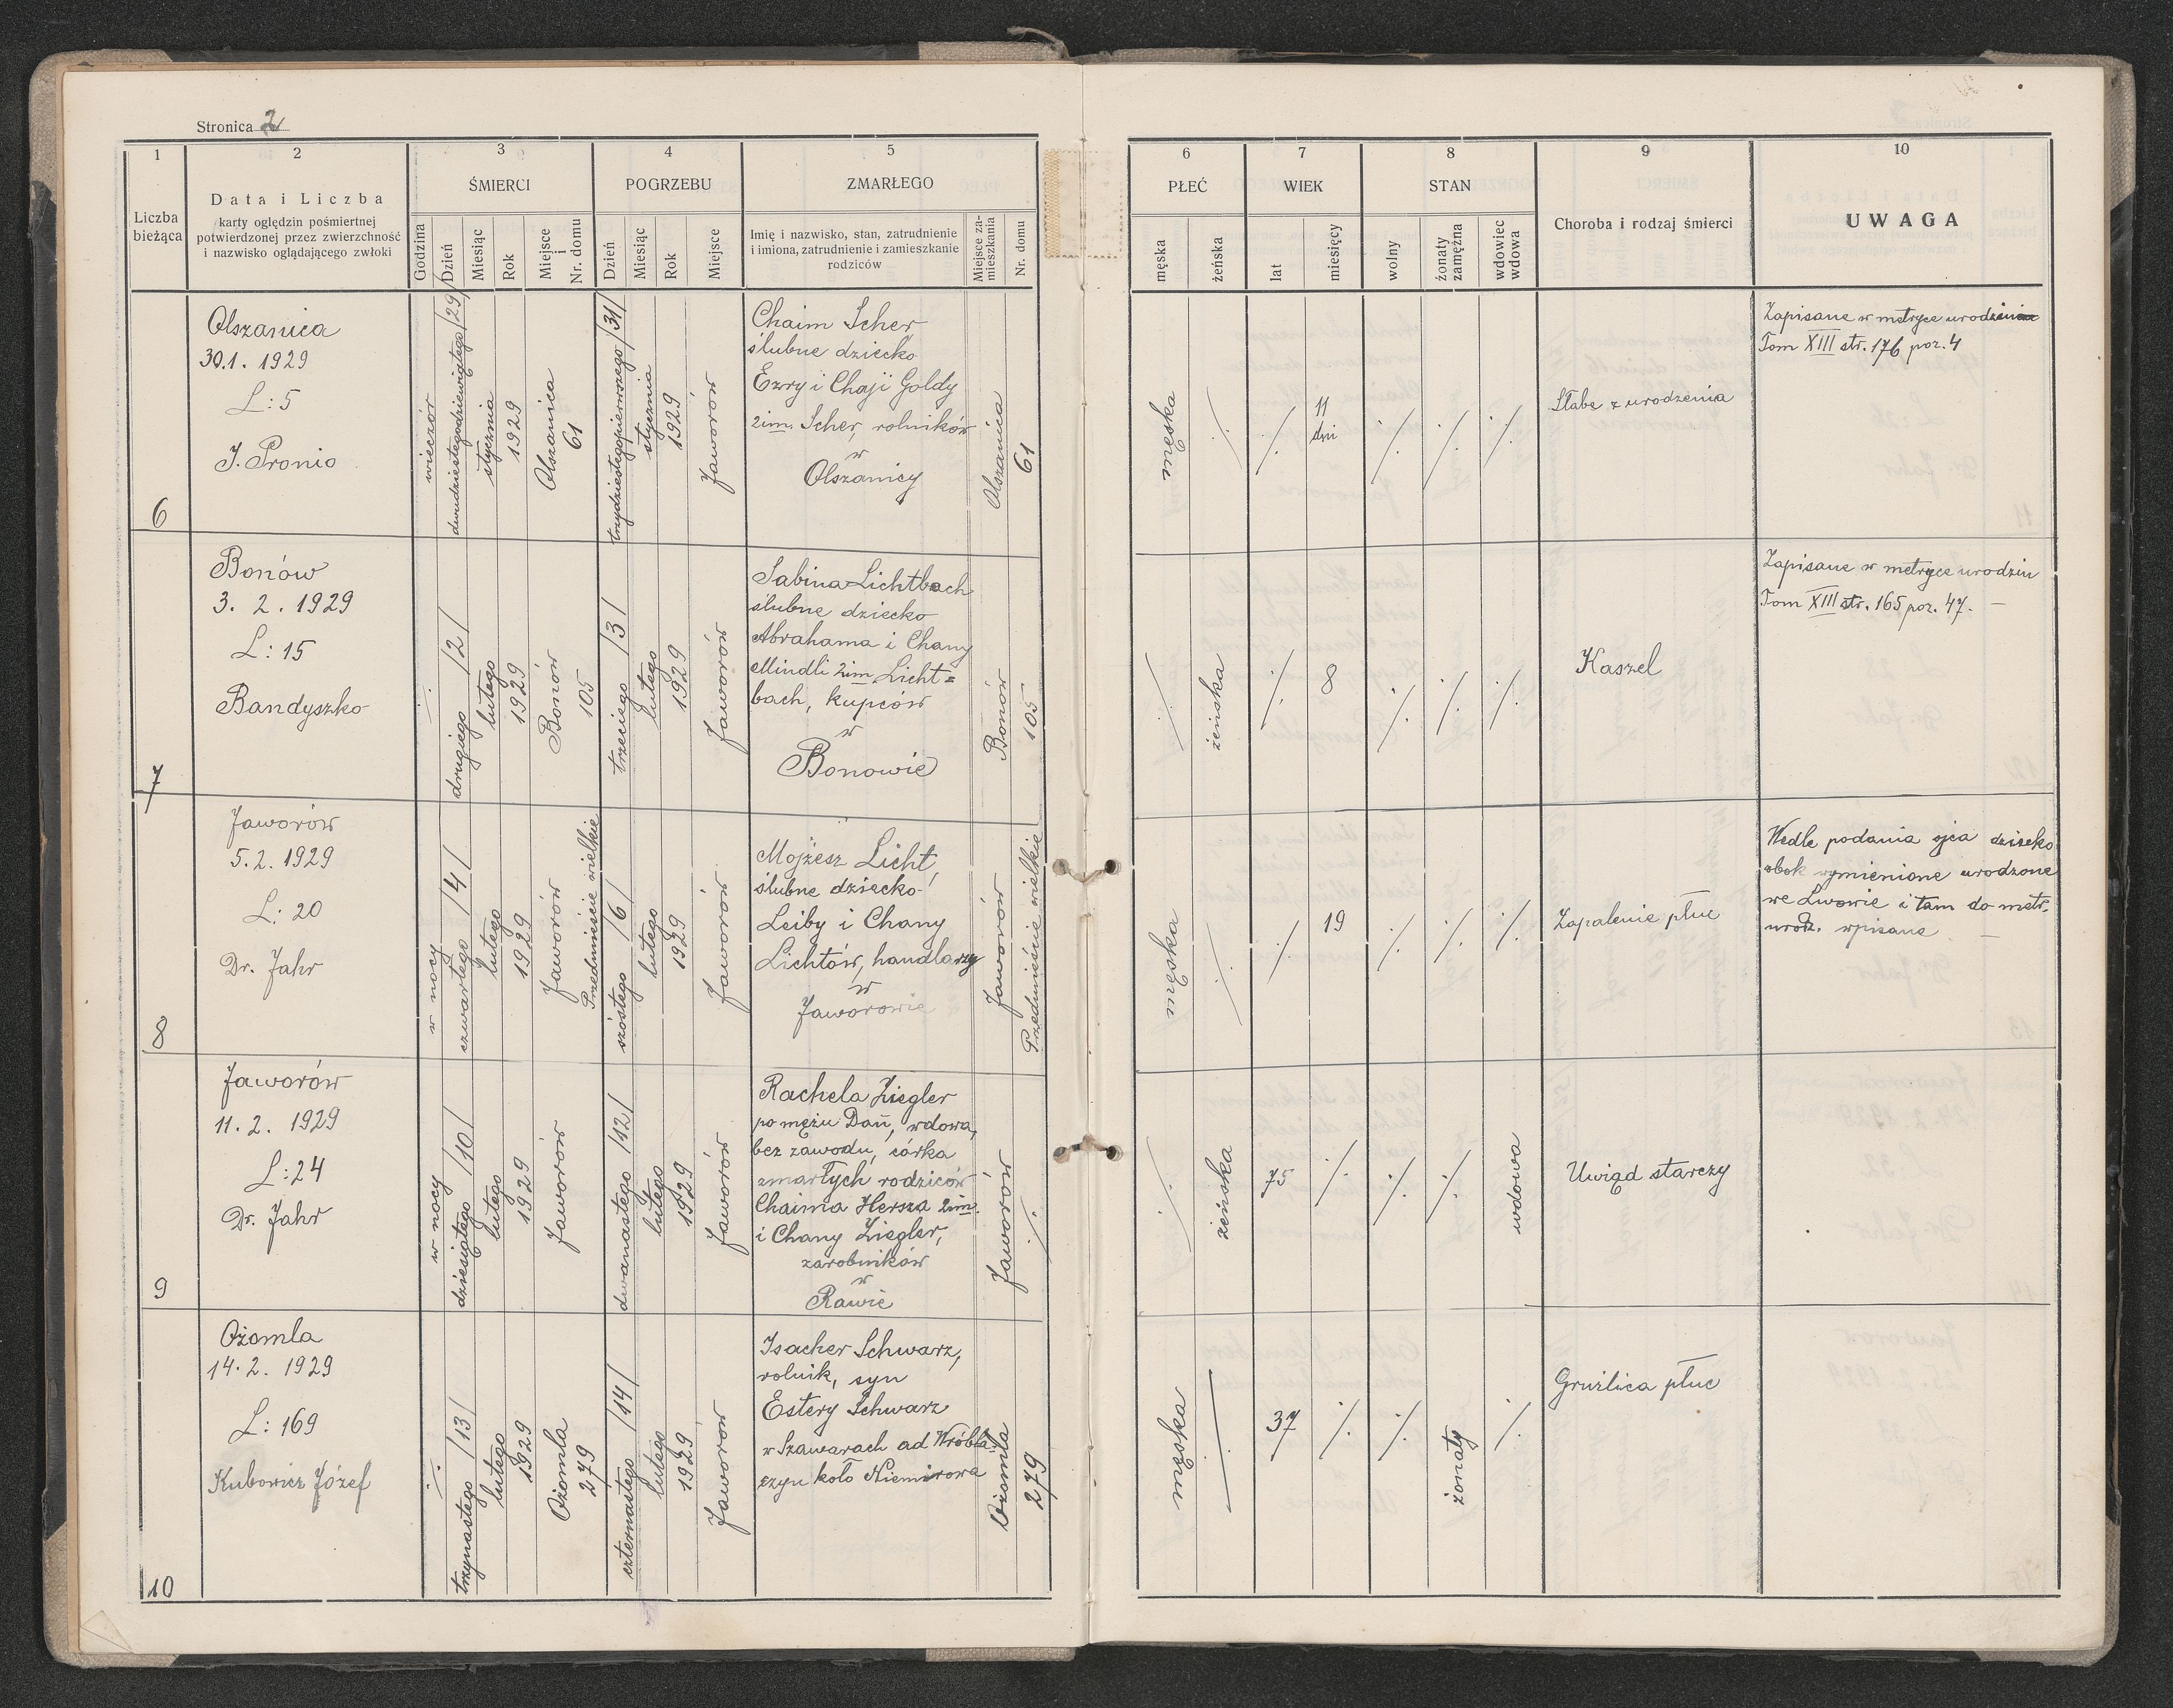 Stronica 2
1
2
3
4
5
Liczba
bieżąca
Data i Liczba
karty oględzin pośmiertnej
potwierdzonej przez zwierzchność
i nazwisko oglądającego zwłoki
ŚMIERCI
Godzina
Dzień
Miesiąc
Rok
Miejsce
i
Nr. domu
POGRZEBU
Dzień
Miesiąc
Rok
Miejsce
ZMARŁEGO
Imię i nazwisko, stan, zatrudnienie
i imiona, zatrudnienie i zamieszkanie
rodziców
Miejsce za-
mieszkania
Nr. domu
6
7
8
9
10
PŁEĆ
męska
żeńska
WIEK
lat
miesięcy
STAN
wolny
żonaty
zamężna
wdowiec
wdowa
Choroba i rodzaj śmierci
UWAGA
6
Olszanica
30.1. 1929
L: 5
J. Pronio
wieczór
dwudziestegodziewiątego /29/
stycznia
1929
Olszanica
61
trzydziestegopierwszego /31/
stycznia
1929
Jaworów
Chaim Scher
ślubne dziecko
Ezry i Chaji Goldy
2im. Scher, rolników
w
Olszanicy
Olszanica
61
męska
./.
./.
11
dni
./.
./.
./.
Słabe z urodzenia
Zapisane w metryce urodzenia
Tom XIII str. 176 poz. 4
7
Bonów
3. 2. 1929
L: 15
Bandyszko
./.
drugiego /2/
lutego
1929
Bonów
105
trzeciego /3/
lutego
1929
Jaworów
Sabina Lichtbach
ślubne dziecko
Abrahama i Chany
Mindli 2im Licht=
bach, kupców
w
Bonowie
Bonów
105
./.
żeńska
./.
8
./.
./.
./.
Kaszel
Zapisane w metryce urodzin
Tom XIII str. 165 poz. 47. —
8
Jaworów
5. 2. 1929
L: 20
Dr. Jahr
w nocy
czwartego /4/
lutego
1929
Jaworów
Przedmieście wielkie
szóstego /6/
lutego
1929
Jaworów
Mojżesz Licht,
ślubne dziecko
Leiby i Chany
Lichtów, handlarzy
w
Jaworowie
Jaworów
Przedmieście wielkie
męska
./.
./.
19
./.
./.
./.
Zapalenie płuc
Wedle podania ojca dziecko
obok wymienione urodzone
we Lwowie i tam do metr.
urodz. wpisane —
9
Jaworów
11. 2. 1929
L: 24
Dr. Jahr
w nocy
dziesiątego /10/
lutego
1929
Jaworów
dwanastego /12/
lutego
1929
Jaworów
Rachela Ziegler
po mężu Dań, wdowa,
bez zawodu, córka
zmarłych rodziców
Chaima Hersza 2im.
i Chany Ziegler,
zarobników
w
Rawie
Jaworów
./.
./.
żeńska
75
./.
./.
./.
wdowa
Uwiąd starczy
10
Ożomla
14. 2. 1929
L: 169
Kubowicz Józef
./.
trzynastego /13/
lutego
1929
Ożomla
279
czternastego /14/
lutego
1929
Jaworów
Isacher Schwarz,
rolnik, syn
Estery Schwarz
w Szawarach ad Wróbla-
czyn koło Niemirowa
Ożomla
279
męska
./.
37
./.
./.
żonaty
./.
Gruźlica płuc